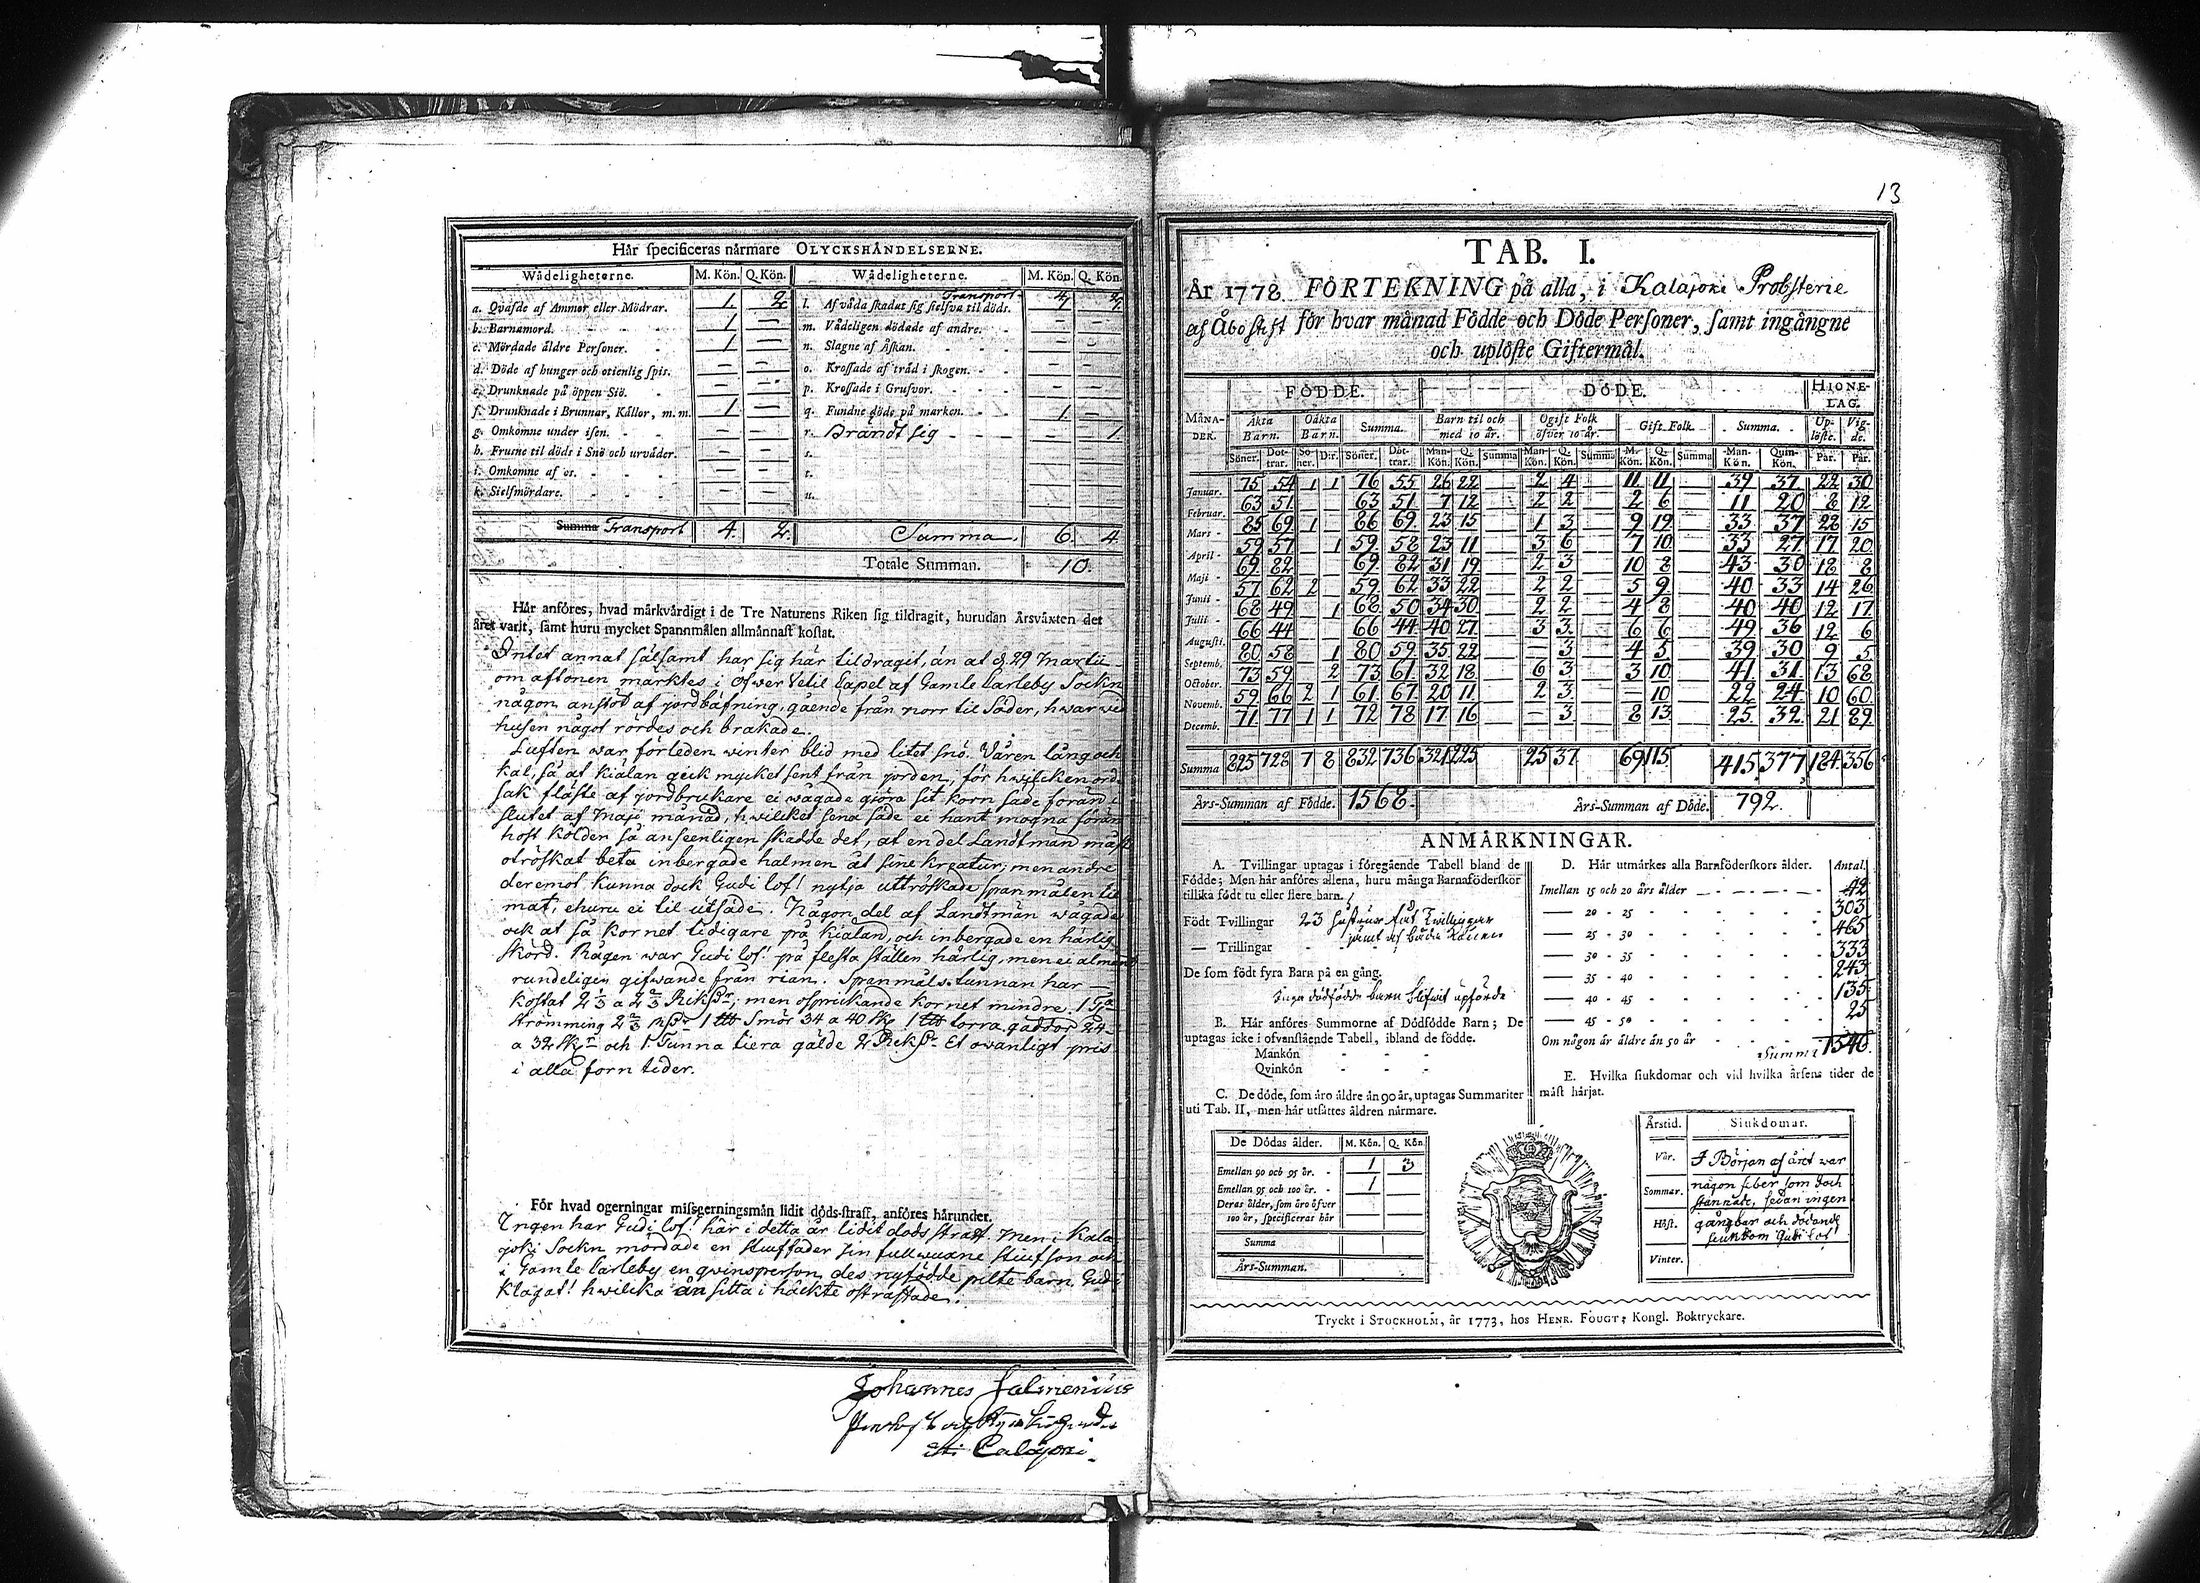 Här specificeras närmare OLYCKSHÄNDELSERNE.
Wådeligheterne. M. Kön. Q. Kön. Wådeligheterne. M. Kön. Q. Kön.
a. Qväfde af Ammor eller Mödrar. 1. 2. Transport 4. 2. l. Af våda skadat sig sielfva til döds.
b. Barnamord. 1 — m. Vådeligen dödade af andre. — —
c. Mördade äldre Personer. 1 — n. Slagne af Åskan. — —
d. Döde af hunger och otienlig spis. — — o. Krossade af träd i skogen. — —
e. Drunknade på öppen Siö. — — p. Krossade i Grufvor. — —
f. Drunknade i Brunnar, Källor, m. m. 1 — q. Fundne döde på marken. 1. —
g. Omkomne under isen. — — r. Brändt sig — 1.
h. Frusne til döds i Snö och urväder. — — s.
i. Omkomne af os. — — t.
k. Sielfmördare. — — u.
Summa Transport 4. 2. Summa. 6. 4.
Totale Summan. 10.
Här anföres, hvad märkvärdigt i de Tre Naturens Riken sig tildragit, hurudan Årsväxten det
året varit, samt huru mycket Spannmålen allmännast kostat.
Intet annat sälsamt har sig här tildragit, än at d. 29 Martii
om aftonen märktes i öfwer Vetil Capel af Gamle Carleby Sockn
någon anstöt af jordbäfning, gående från norr til Söder, hwar wid
husen något rördes och brakade.
Luften war förleden winter blid med litet snö. Våren lång och
kal, så at kiälan geck mycket sent från jorden, för hwilcken ord-
sak fläste af jordbrukare ei wågade giöra sit korn säde förän i
slutet af Maji månad, hwilcket sena säde ei hant mogna förän
höst kölden så anseenligen skadde det, at en del Landtmän måst
otröskat beta inbergade halmen åt sine kreatur; men andre
deremot kunna dock Gudi lof! nytja uttröskade spanmålen til
mat, ehuru ei til utsäde. Någon del af Landtmän wågade
ock at så kornet tidigare på kiälan, och inbergade en härlig
skörd. Rågen war Gudi lof! på flesta ställen härlig, men ei almänt
rundeligen gifwande från rian. Spanmåls tunnan har
kostat 2 1/3 a 2 2/3 Riksdr; men ospirkande kornet mindre. 1 Ta
Strömming 2 2/3 Rdr 1 ℔ Smör 34 a 40 sk 1 ℔ torra gäddor 24
a 32 sk och 1 Tunna tiera gälde 2 Riksdr. Et owanligt pris
i alla forn tider.
För hvad ogerningar missgerningsmän lidit döds-straff, anföres härunder.
Ingen har Gudi lof! här i detta år lidit döds straff. Men i Kala-
joki Sockn mördade en stiuffader sin fullwuxne stiufson och
i Gamle Carleby en qwinsperson des nyfödde pilte barn. Gudi
klagat! hwilcka än sitta i häckte ostraffade.
Johannes Salmenius
Calajoki.
13
TAB. I.
År 1778. FÖRTEKNING på alla, i Kalajoki Probsterie
af Åbo stift för hvar månad Födde och Döde Personer, samt ingångne
och uplöste Giftermål.
FÖDDE. DÖDE. HIONE-
LAG.
MÅNA-
DER. Äkta
Barn. Oäkta
Barn. Summa. Barn til och
med 10 år. Ogift Folk
öfver 10 år. Gift Folk. Summa. Up-
löste. Vig-
de.
Söner. Döt-
trar. Sö-
ner. D:r. Söner. Döt-
trar. Man-
Kön. Q.
Kön. Summa Man-
Kön. Q.
Kön. Summa M.
Kön. Q.
Kön. Summa Man-
Kön. Quin-
Kön. Par. Par.
Januar. 75 54 1 1 76 55 26 22 2 4 11 11 39 37 22 30
Februar. 63 51 63 51 7 12 2 2 2 6 11 20 8 12
Mars 85 69 1 86 69 23 15 1 3 9 19 33 37 28 15
April 59 57 1 59 58 23 11 3 6 7 10 33 27 17 20
Maji 69 82 69 82 31 19 2 3 10 8 43 30 18 8
Junii 57 62 2 59 62 33 22 2 2 5 9 40 33 14 26
Julii 68 49 1 68 50 34 30 2 2 4 8 40 40 12 17
Augusti. 66 44 66 44 40 27 3 3 6 6 49 36 12 6
Septemb. 80 58 1 80 59 35 22 — 3 4 5 39 30 9 5
October. 73 59 2 73 61 32 18 6 3 3 10 41 31 13 68
Novemb. 59 66 2 1 61 67 20 11 2 3 — 10 22 24 10 60
Decemb. 71 77 1 1 72 78 17 16 — 3 8 13 25 32 21 89
Summa 825 728 7 8 832 736 321 225 25 37 69 115 415 377 184 356
Års-Summan af Födde. 1568. Års-Summan af Döde. 792.
ANMÄRKNINGAR.
A. Tvillingar uptagas i föregående Tabell bland de
Födde; Men här anföres allena, huru många Barnaföderskor
tillika födt tu eller flere barn.
Födt Tvillingar 23 hustrur födt Twillingar
jämt af båda Könen
— Trillingar
De som födt fyra Barn på en gång.
Inga dödfödde Barn blifwit upförde
B. Här anföres Summorne af Dödfödde Barn; De
uptagas icke i ofvanstående Tabell, ibland de födde.
Mankön
Qvinkön
C. De döde, som äro äldre än 90 år, uptagas Summariter
uti Tab. II, men här utsättes åldren närmare.
De Dödas ålder. M. Kön. Q. Kön
Emellan 90 och 95 år. 1 3
Emellan 95 och 100 år. 1
Deras ålder, som äro öfver
100 år, specificeras här
Summa
Års-Summan.
D. Här utmärkes alla Barnföderskors ålder. Antal.
Imellan 15 och 20 års ålder 42
— 20 - 25 303
— 25 - 30 465
— 30 - 35 333
— 35 - 40 243
— 40 - 45 135
— 45 - 50 25
Om någon är äldre än 50 år
Summa 1546.
E. Hvilka siukdomar och vid hvilka årsens tider de
mäst härjat.
Årstid. Siukdomar.
Vår. I Början af året war
Sommar. någon feber som doch
stannade, sedan ingen
Höst. gångbar och dödande
siukdom Gudi lof!
Vinter.
Tryckt i STOCKHOLM, år 1773, hos HENR. FOUGT, Kongl. Boktryckare.